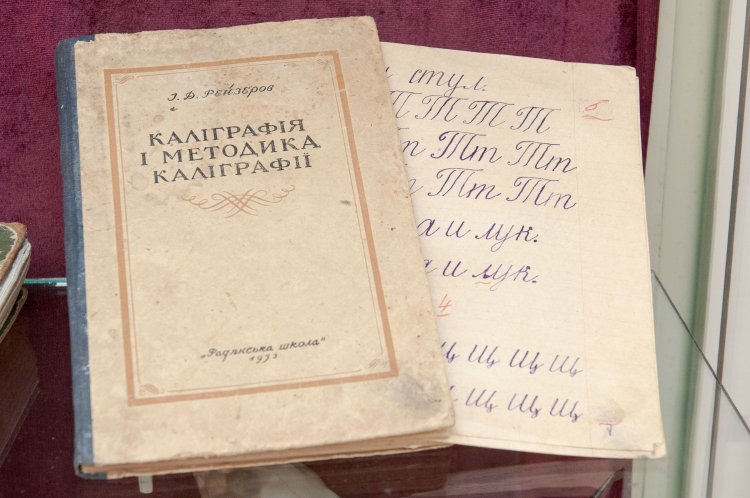 І. Д. Рейзеров
КАЛІГРАФІЯ
І МЕТОДИКА
КАЛІГРАФІЇ
„Радянська школа"
1953
стул.
Т Т Т Т
Тт Тт
Тт Тт
а и лук.
а и лук.
4
Щ Щ Щ Щ
Щ Щ Щ